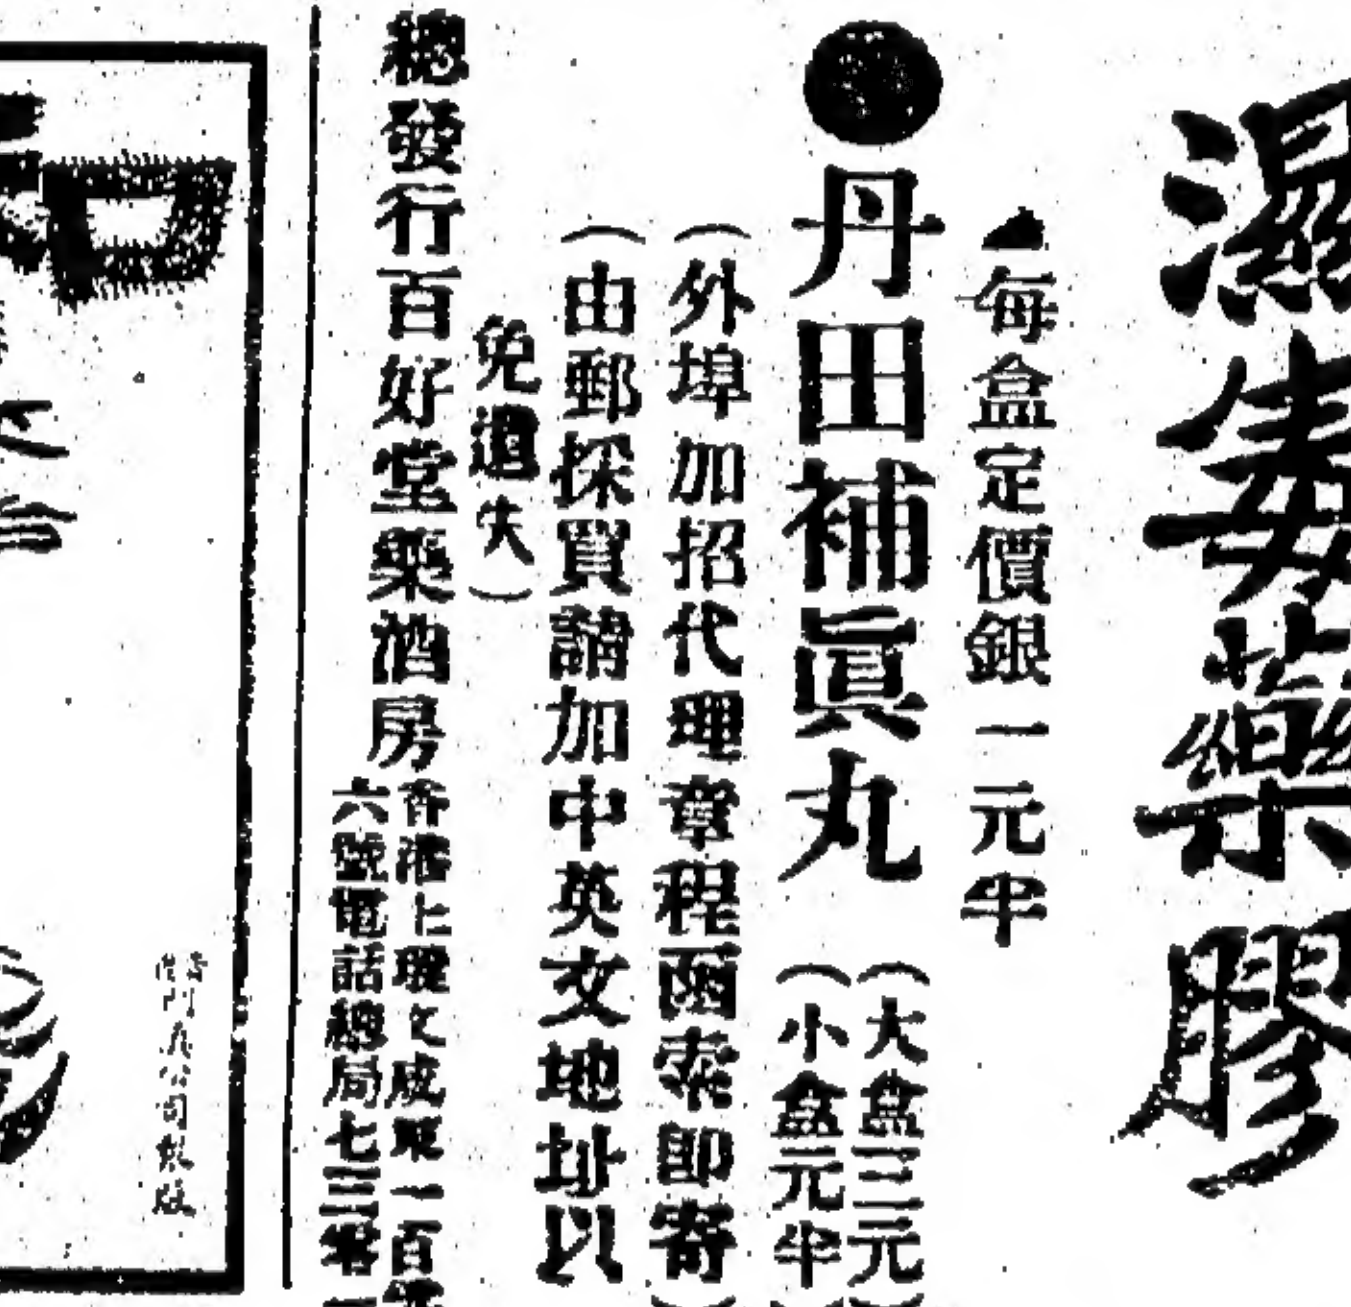 濕毒藥膠
▲每盒定價銀一元半
●丹田補眞丸
(大盒三元)
(小盒元半)
(外埠加招代理章程函索即寄)
(由郵採買請加中英文地址以
免遺失)
總發行百好堂藥酒房
香港上環文咸東一百零
六號電話總局七三零一